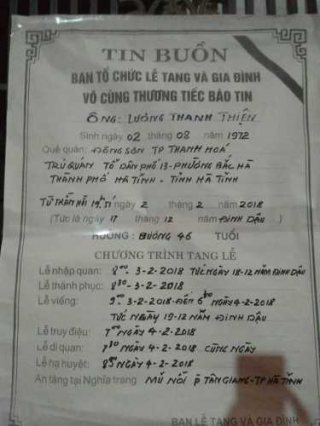 TIN BUỒN
BAN TỔ CHỨC LỄ TANG VÀ GIA ĐÌNH
VÔ CÙNG THƯƠNG TIẾC BÁO TIN
ÔNG: LƯƠNG THANH THIỆN
Sinh ngày 02 tháng 08 năm 1972
Quê quán: ĐÔNG SƠN TP THANH HOÁ
TRÚ QUÁN TỔ DÂN PHỐ 13 - PHƯỜNG BẮC HÀ
THÀNH PHỐ HÀ TĨNH - TỈNH HÀ TĨNH
TỪ TRẦN HỒI 19h ngày 2 tháng 2 năm 2018
(Tức là ngày 17 tháng 12 năm ĐINH DẬU)
HƯỞNG DƯƠNG 46 TUỔI
CHƯƠNG TRÌNH TANG LỄ
Lễ nhập quan: 3-2-2018 TỨC NGÀY 18-12 NĂM ĐINH DẬU
Lễ thành phục: 3-2-2018
Lễ viếng: 3-2-2018 ĐẾN NGÀY 4-2-2018
TỨC NGÀY 19-12 NĂM ĐINH DẬU
Lễ truy điệu: NGÀY 4-2-2018
Lễ di quan: NGÀY 4-2-2018 CÙNG NGÀY
Lễ hạ huyệt: NGÀY 4-2-2018
An táng tại Nghĩa trang NÚI NÀI P TÂN GIANG - TP HÀ TĨNH
BAN LỄ TANG VÀ GIA ĐÌNH